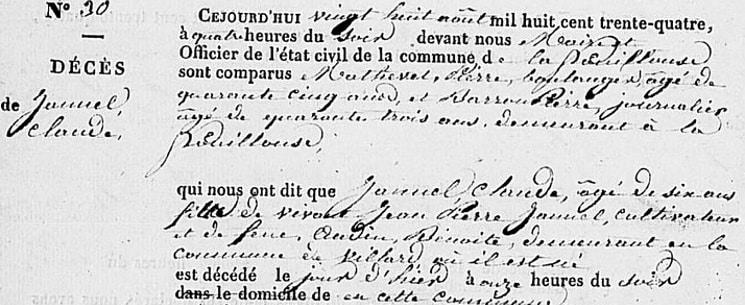 N° 30
DÉCÈS
de Jamuel
Claude,
CEJOURD'HUI vingt huit aout mil huit cent trente-quatre,
à quatre heures du Soir devant nous Maire et
Officier de l'état civil de la commune de la
sont comparus Mathevet, Pierre, boulanger, âgé de
quarante cinq ans, et Barrou Pierre, journalier
âgé de quarante trois ans, demeurant à la
qui nous ont dit que Jamuel, Claude, âgé de six ans
fille de vivant Jean Pierre Jamuel, cultivateur
et de feue, Oudin, Benoite, demeurant en la
commune de Villard, où il est né
est décédé le jour d'hier à onze heures du soir
dans le domicile de en cette commune